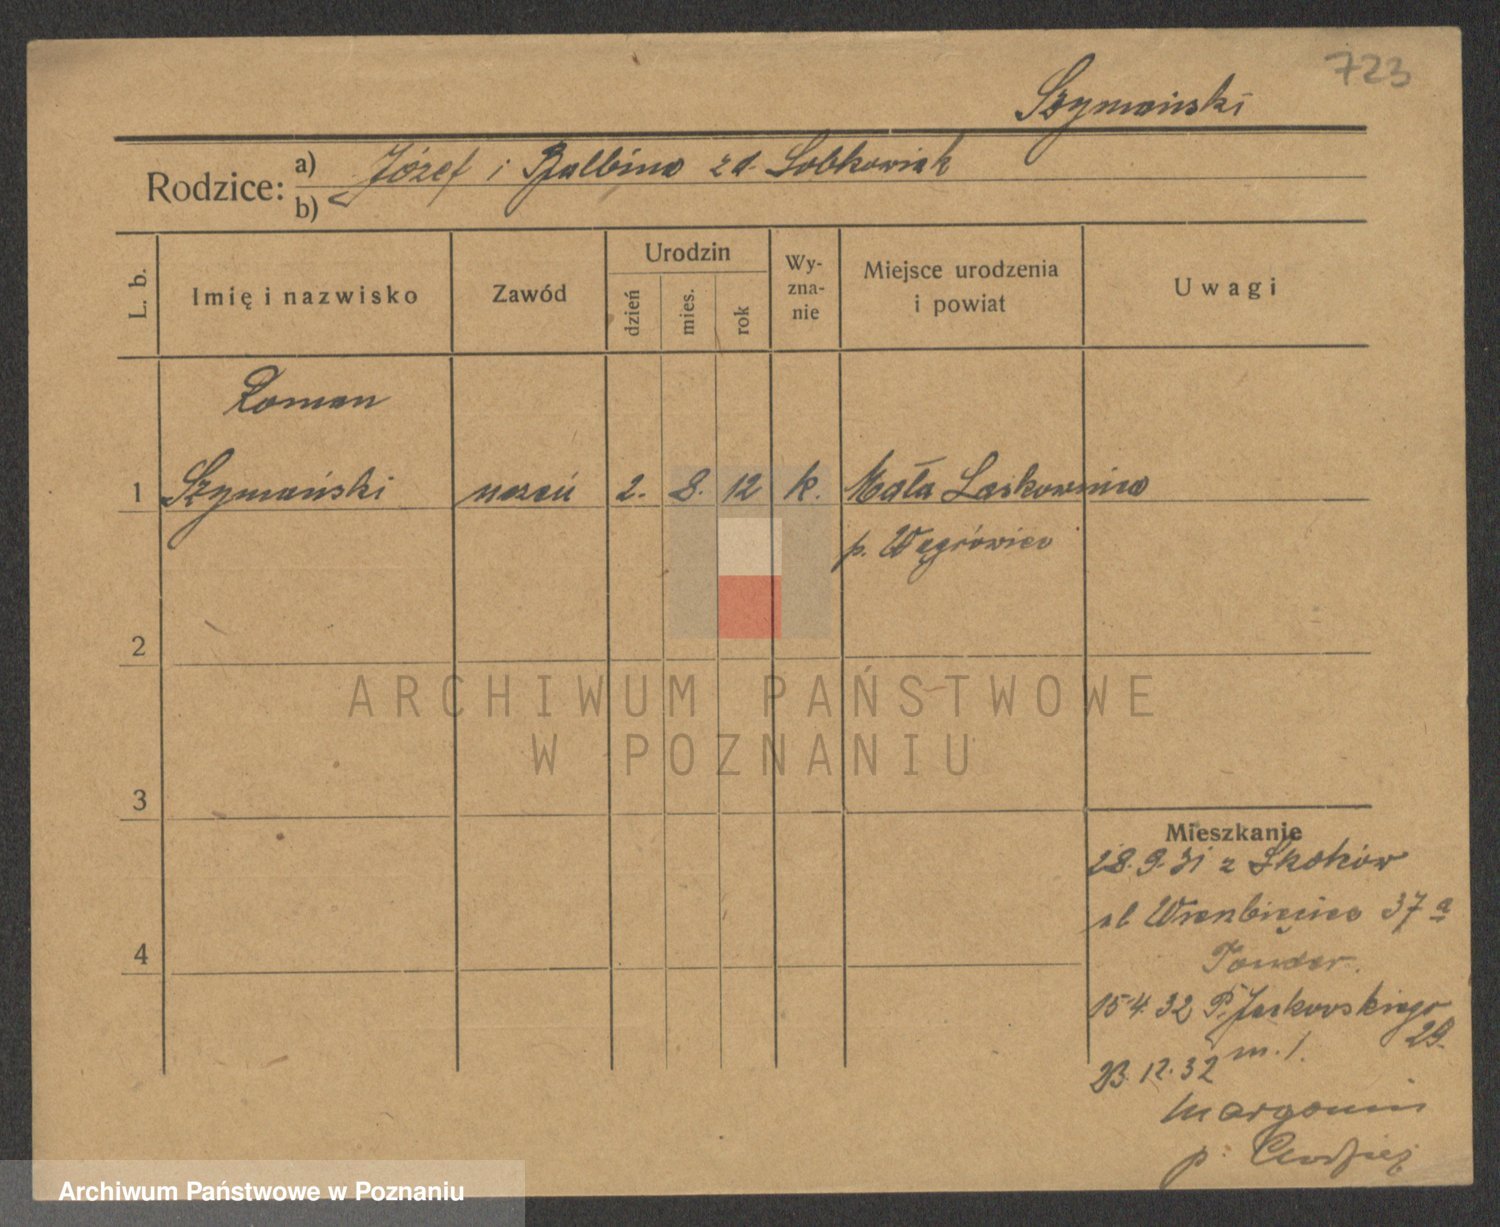 723
Szymański
Rodzice: a) Józef i Balbina z d. Sobkowiak
b)
L. b. Imię i nazwisko Zawód Urodzin dzień mies. rok Wyznanie Miejsce urodzenia i powiat Uwagi
Roman
1 Szymański uczeń 2. 8. 12 k. Mała Laskownica
p. Wągrówiec
2
ARCHIWUM PAŃSTWOWE
W POZNANIU
3
Mieszkanie
28.9.31 z Skoków
ul Wierzbięcice 37a
4
15.4.32 P. Jackowskiego
29.
m. 1.
23.12.32
Margonin
p. Chodzież
Archiwum Państwowe w Poznaniu